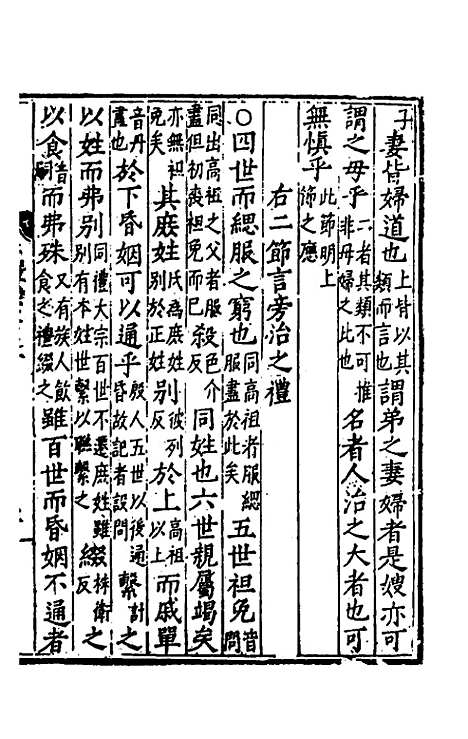 子妻皆婦道也上皆以其類而言也謂弟之妻婦者是嫂亦可
謂之母乎二者其類不可推非母婦之比也名者人治之大者也可
無慎乎此節明上節之應
右二節言旁治之禮
○四世而緦服之窮也同高祖者服緦服盡於此矣五世袒免音問
同出高祖之父者服盡但初喪袒免而已殺色介反同姓也六世親屬竭矣
亦無袒免矣其庶姓氏為庶姓別於正姓別彼列反於上高祖以上而戚單
音丹盡也於下昏姻可以通乎殷人五世以後通昏故記者設問繫計之
以姓而弗別同禮大宗百世不遷庶姓雖別有本姓世繫以聯繫之綴株衛反之
以食音嗣而弗殊又有族人飲食之禮綴之雖百世而昏姻不通者